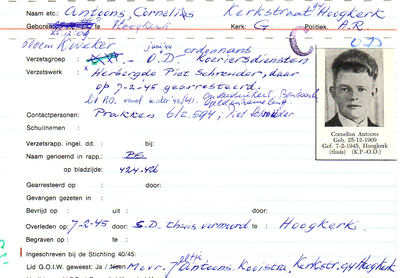 Naam etc.: Antoons, Cornelis Kerkstraat 94 Hoogkerk
Geboren Hoogkerk Kerk: G Politiek: A.R.
25-12-09
bloem Kweker ordonnans O.D.
Verzetsgroep O.D. Koeriersdiensten
Verzetswerk : Herbergde Piet Schreuder, daar
op 7-2-45 gearresteerd.
Lid P.O. vanaf winter 40/41.
Contactpersonen: Prakken blz. 594; Piet Schreuder
Schuilnamen :
Verzetsrapp. ingel. dd. : bij:
Naam genoemd in rapp.: BS
op bladzijde: 424-426
Gearresteerd op : door:
Gevangen gezeten in :
Bevrijd op : uit : door:
Overleden op: 7-2-45 door: S.D. thuis vermoord te : Hoogkerk.
Begraven op : te :
Ingeschreven bij de Stichting 40/45:
Lid G.O.I.W. geweest: Ja / Neen Mevr. Antoons-Kooistra, Kerkstr. 94 Hoogkerk
Cornelius Antoons
Geb. 25-12-1909
Gef. 7-2-1945, Hoogkerk
(thuis) (K.P.-O.D.)